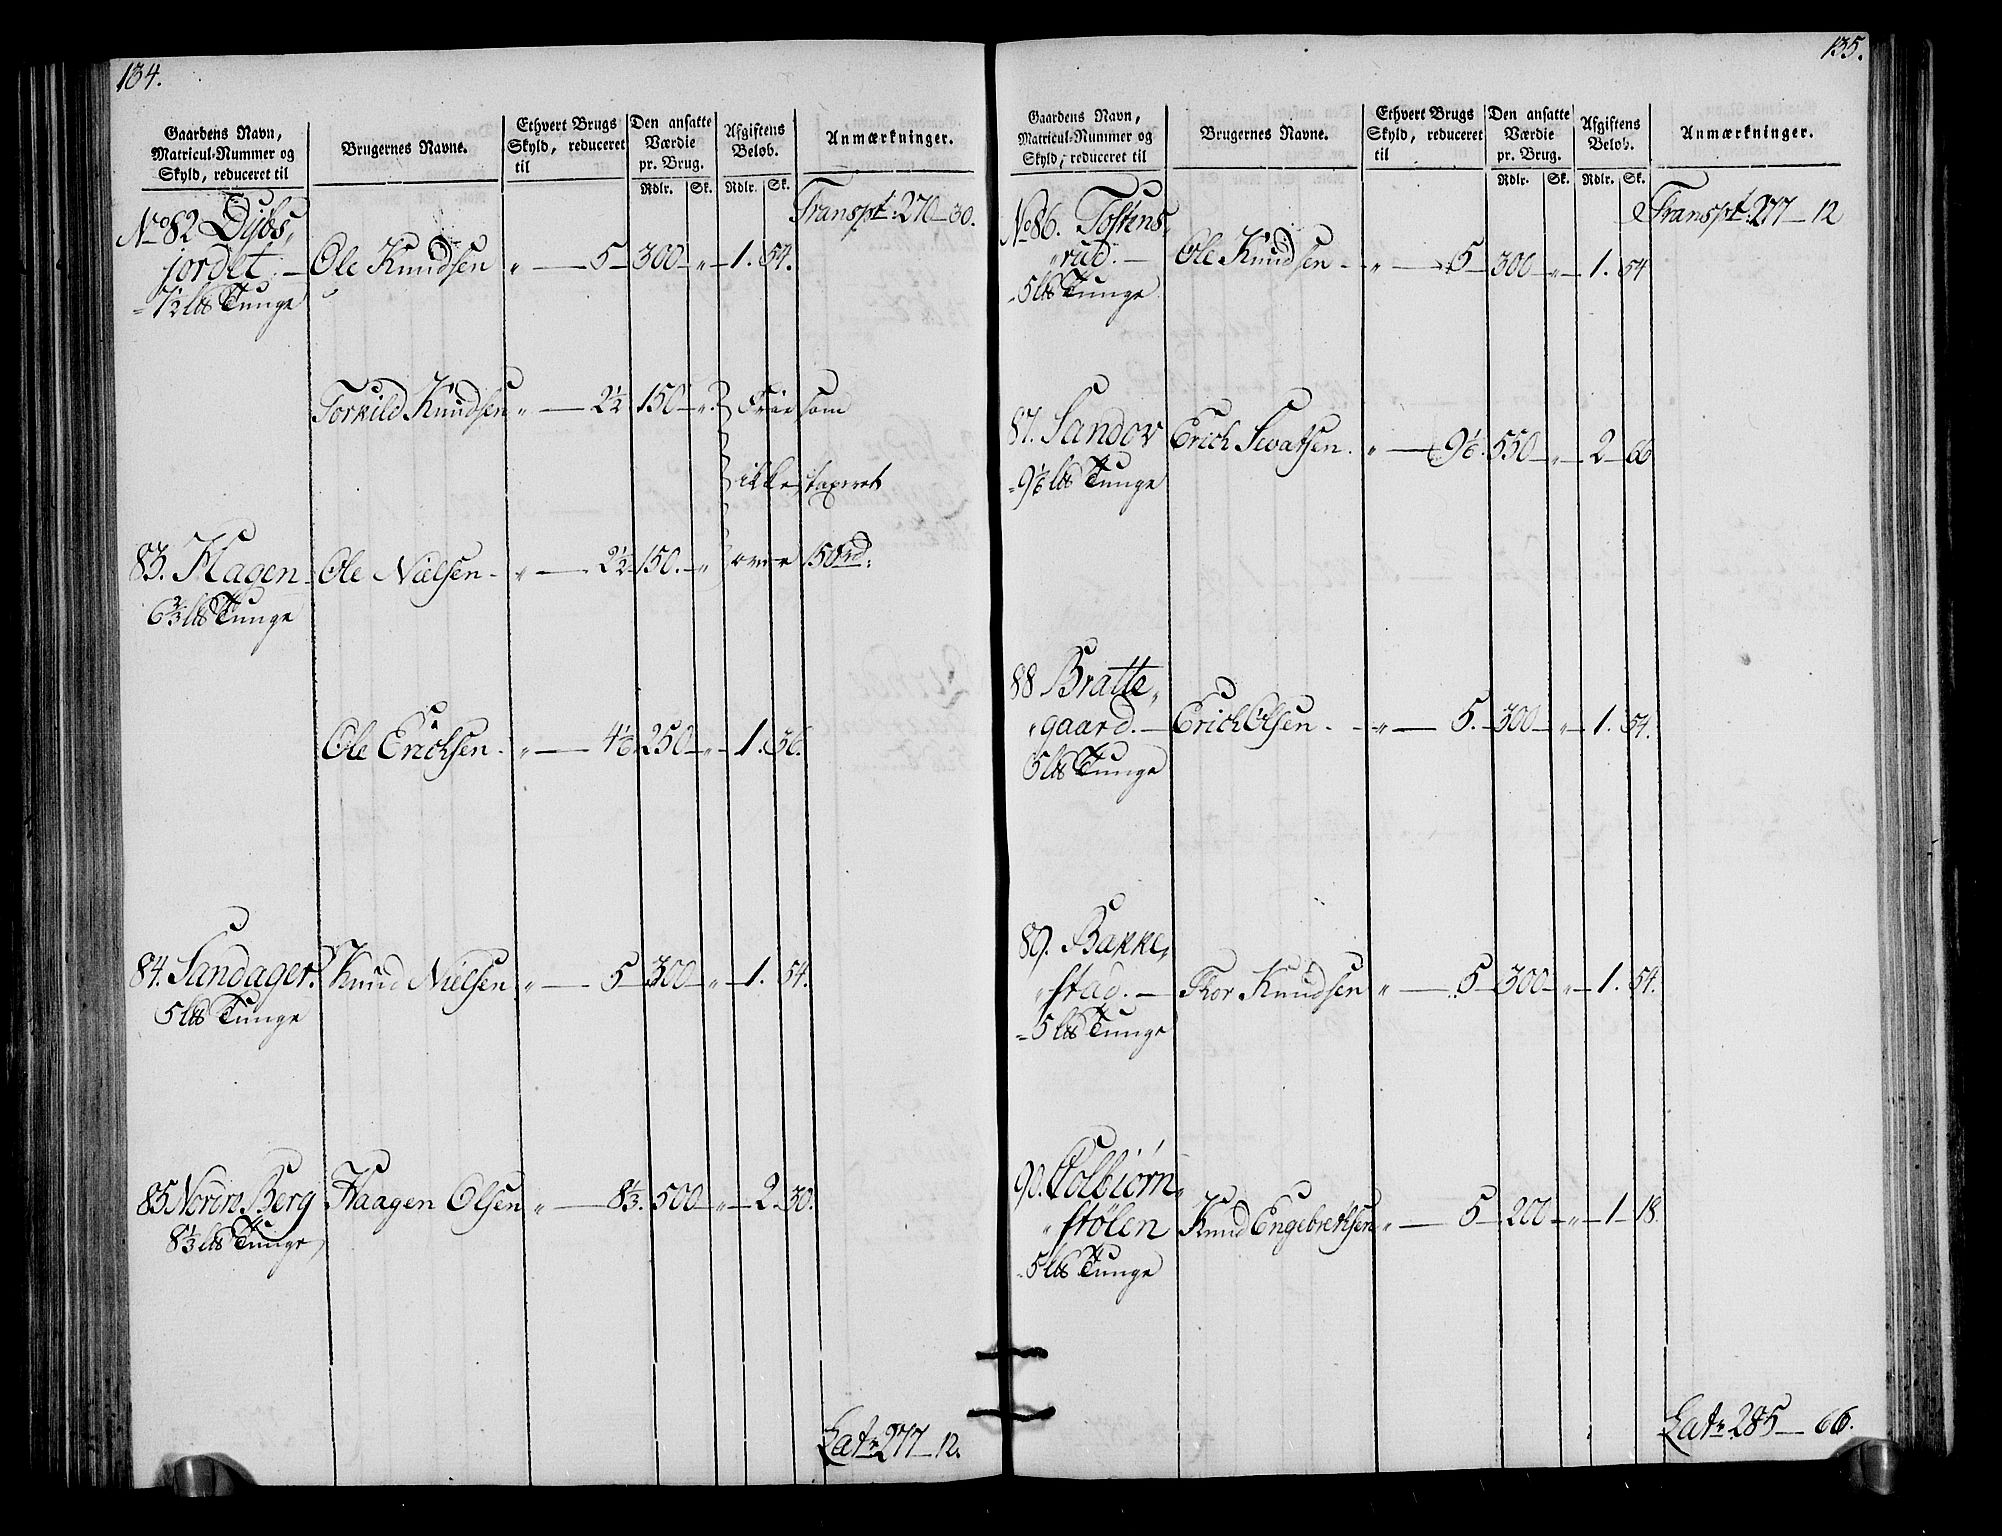 134.
Gaardens Navn, Matricul-Nummer og Skyld, reduceret til
Brugernes Navne.
Ethvert Brugs Skyld, reduceret til
Den ansatte Værdie pr. Brug.
Afgiftens Beløb.
Anmærkninger.
Rdlr. Sk. Rdlr. Sk.
Transpt: 270 — 30.
No 82 Dybs,
jordet. — Ole Knudsen „ — 5 — 300 — „ — 1. 54.
= 7½ l℔ Tunge
Torkild Knudsen „ — 2½ 150 — „ Friesom
ikke taxeret
83. Hagen Ole Nielsen - „ — 2½ 150. „ over 150 rd.
6⅔ l℔ Tunge
Ole Erichsen - „ — 4⅙ 250 — „ — 1. 36.
84. Sandager. Knud Nielsen „ — 5 — 300 — „ — 1. 54.
5 l℔ Tunge
85 Norden Berg Haagen Olsen „ — 8⅓. 500 — „ — 2. 30.
8⅓ l℔ Tunge
Lat: 277 — 12.
135.
Gaardens Navn, Matricul-Nummer og Skyld, reduceret til
Brugernes Navne.
Ethvert Brugs Skyld, reduceret til
Den ansatte Værdie pr. Brug.
Afgiftens Beløb.
Anmærkninger.
Rdlr. Sk. Rdlr. Sk.
Transpt: 277 — 12
No 86. Tostens,
„rud. — Ole Knudsen - „ — 5 — 300 — „ — 1. 54
= 5 l℔ Tunge
87. Sandov Erich Sivatsen. „ — 9⅙. 550 — „ — 2 — 66
= 9⅙ l℔ Tunge
88 Bratte„
„gaard. — Erich Olsen - „ — 5. — 300 — „ — 1. 54.
5 l℔ Tunge
89. Bakke,
„stad. — Thor Knudsen „ — 5 — 300 — „ — 1. 54.
= 5 l℔ Tunge
90. Tolbiørn„
„stølen Knud Engebrethsen „ — 5 — 200 — „ — 1 — 18.
= 5 l℔ Tunge
Lat: 285 — 66.